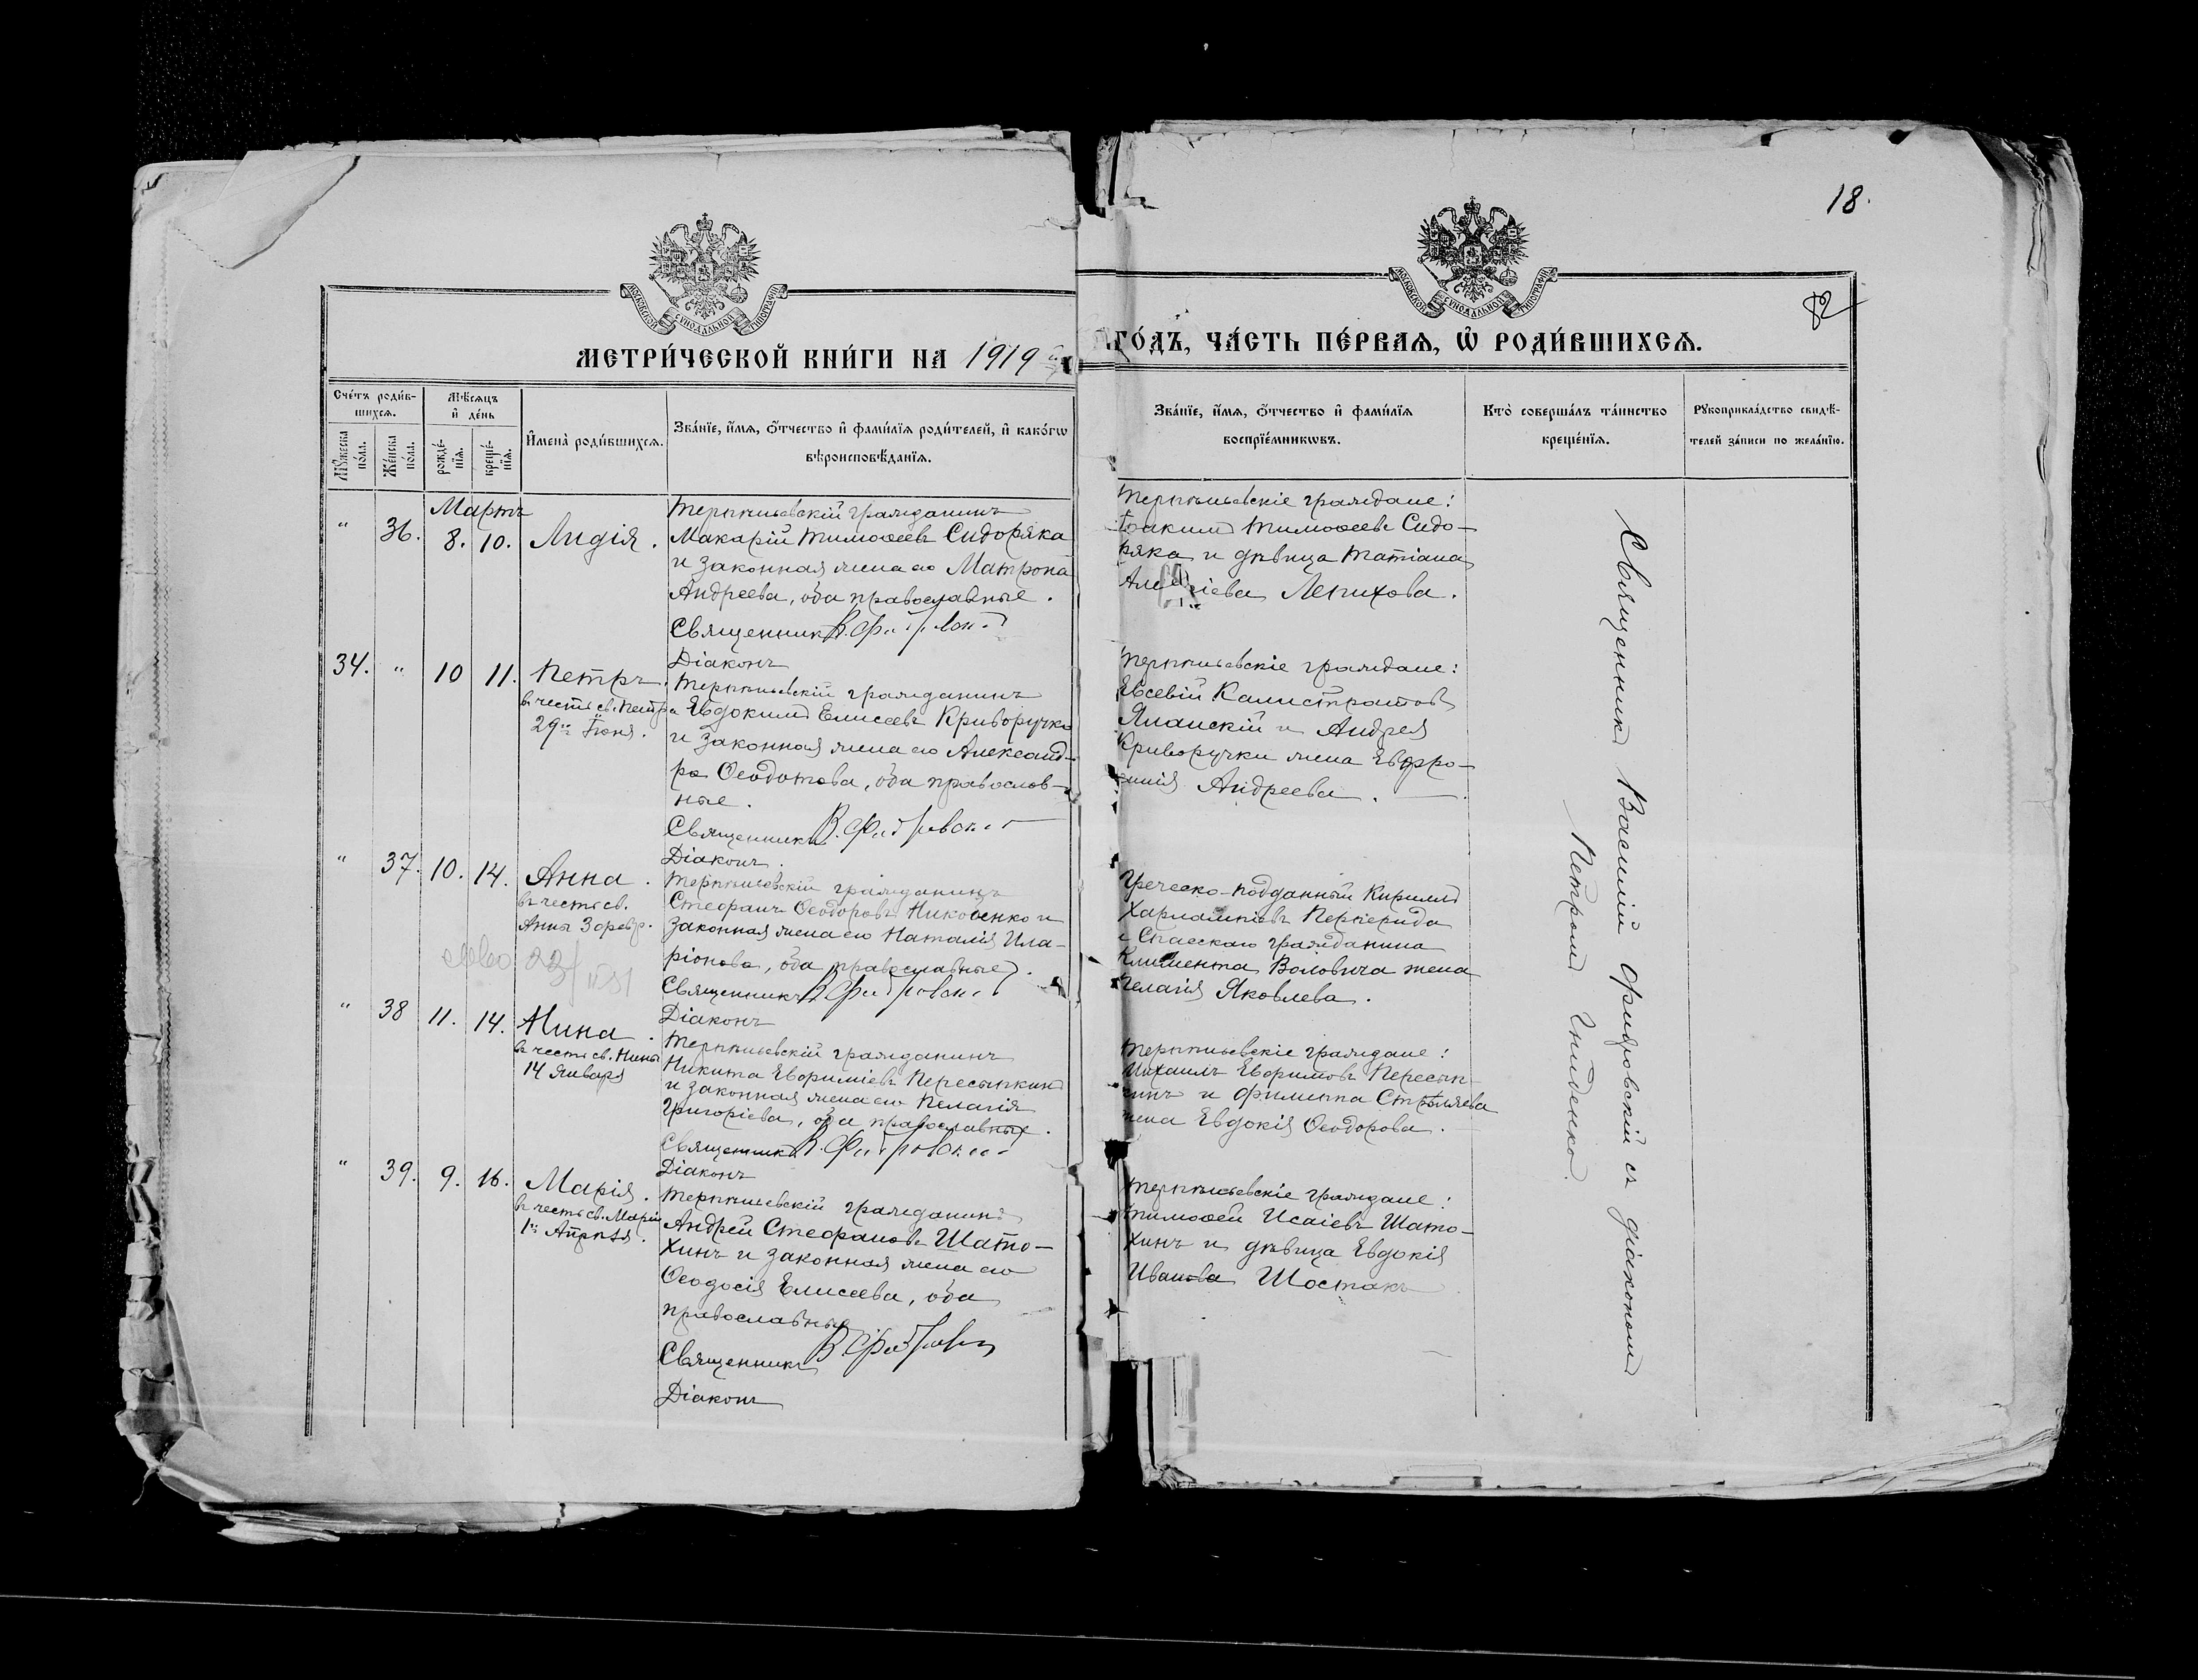 18.
82
МОСКОВСКОЙ СУНОДАЛЬНОЙ ТИПОГРАФІИ
МОСКОВСКОЙ СУНОДАЛЬНОЙ ТИПОГРАФІИ
МЕТРИ́ЧЕСКОЙ КНИ́ГИ НА 1919 й
ГО́ДЪ, ЧА́СТЬ ПЕ́РВАЯ, Ѡ҆ РОДИ́ВШИХСЯ.
Сче́тъ роди́в-
шихся.
Му́жеска по́ла.
Же́нска по́ла.
Мѣ́сяцъ
и҆ де́нь
рожде́-
нїя.
креще́-
нїя.
И҆мена̀ роди́вшихся.
Зва́нїе, и҆́мя, ѻ҆́тчество и҆ фамѝлїя роди́телей, и҆ како́гѡ
вѣроисповѣ́данїя.
Зва́нїе, и҆́мя, ѻ҆́тчество и҆ фамѝлїя
воспрїе́мниковъ.
Кто̀ соверша́лъ та́инство
креще́нїя.
Рꙋкоприкла́дство свидѣ́-
телей за́писи по жела́нїю.
Мартъ
" 36. 8. 10. Лидія.
Терпѣніевскій гражданинъ
Макарій Тимофеевъ Сидоряка
и законная жена его Матрона
Андреева, оба православные.
Священникъ
Діаконъ
Терпѣніевскіе граждане:
Іоакимъ Тимофеевъ Сидо-
ряка и дѣвица Татіана
Лепихова.
34. " 10 11. Петръ.
въ честь св. Петра
29го Іюня.
Терпѣніевскій гражданинъ
Евдокимъ Елисеевъ Криворучко
и законная жена его Александ-
ра Ѳеодотова, оба православ-
ные.
Священникъ В. Фитровскій
Діаконъ.
Терпѣніевскіе граждане:
Евсевій Калистратовъ
Яланскій и Андрея
Криворучки жена Евфро-
синія Андреева.
" 37. 10. 14. Анна.
въ честь св.
Анны 3 февр.
Терпѣніевскій гражданинъ
Стефанъ Ѳеодоровъ и
законная жена его Наталія Ила-
ріонова, оба православные.
Священникъ В. Фитровскій
Діаконъ
Греческо-подданный Кириллъ
Харлампіевъ
и Спасскаго гражданина
Климента Воловича жена
Пелагія Яковлева.
" 38 11. 14. Нина.
въ честь св. Нины
14 Января
Терпѣніевскій гражданинъ
Никита Евфиміевъ Пересыпкинъ
и законная жена его Пелагія
Григоріева, оба православные.
Священникъ В. Фитровскій
Діаконъ
Терпѣніевскіе граждане:
Михаилъ Евфимовъ Пересып-
кинъ и Филиппа Стрѣляева
жена Евдокія Ѳеодорова.
" 39. 9. 16. Марія.
въ честь св. Маріи
1го Апрѣля.
Терпѣніевскій гражданинъ
Андрей Стефановъ Шато-
хинъ и законная жена его
Ѳеодосія Елисеева, оба
православные
Священникъ
Діаконъ
Терпѣніевскіе граждане:
Тимофей Исаіевъ Шато-
хинъ и дѣвица Евдокія
Иванова Шостакъ
Священникъ Василій Фитровскій съ діакономъ
Петромъ Гниденко.